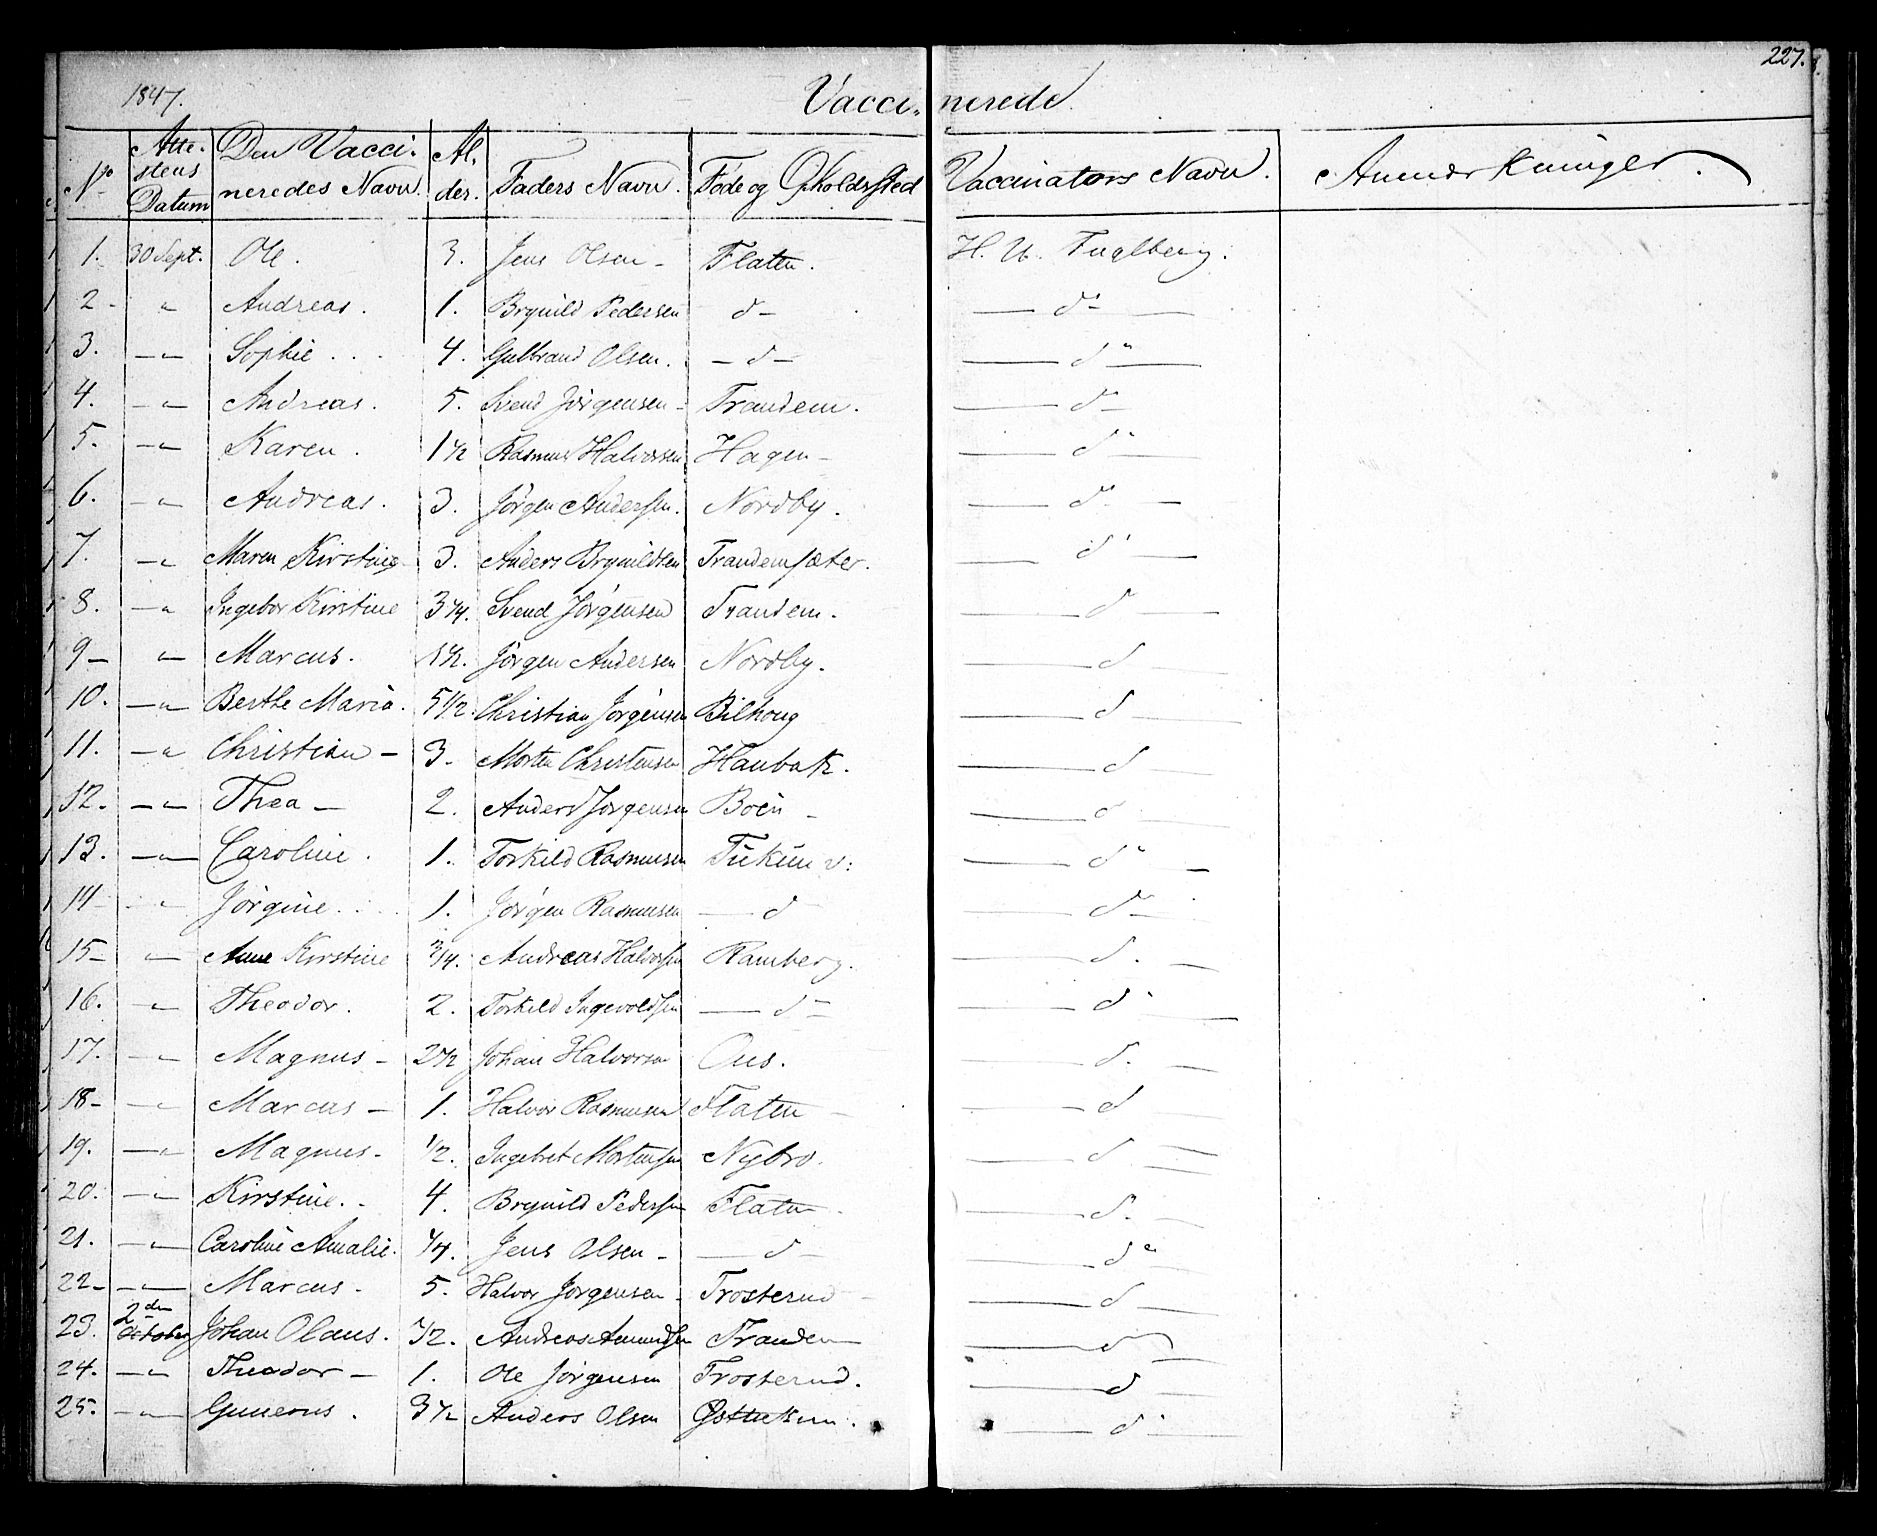 227.
1847. Vacci- nerede
No Atte-stens Datum Den Vacci-neredes Navn. Al-der. Faders Navn. Føde og Opholdssted Vaccinators Navn. Anmærkninger.
1. 30 Sept. Ole. 3. Jens Olsen - Flaten. H. U. Fuglberg.
2 - " Andreas. 1. Brynild Pedersen d - — d - —
3. - " - Sophie . . . 4. Gulbrand Olsen. - d - — d " —
4. - " - Andreas. 5. Svend Jörgensen - Trandem. — d -
5. - " - Karen. 1 1/2 Rasmus Halvorsen Hagen - — d " —
6. - " - Andreas. 3. Jörgen Anderssen. Nordby. — d " —
7. - " Maren Kirstine 3. Anders Brynildsen Trandemsæter. — d ' —
8. - " Ingebor Kirstine 3 1/4. Svend Jörgensen Trandem. — d —
9 - " - Marcus. 1 1/2. Jörgen Andersen Nordby. — d —
10. - " - Berthe Maria. 5 1/2. Christian Jörgensen Bilhoug — d —
11. - " Christian - 3. Morten Christensen Haubak. — d —
12. - " - Thea - 2. Anders Jörgensen Boen - — d —
13. - " - Caroline. 1. Torkild Rasmusen v: — d " —
14 - " - Jörgine . . . 1. Jörgen Rasmusen — d — d - —
15 - " - Anne Kirstine 3/4. Andreas Halvorsen Ramberg. — d . —
16. - " - Theodor. 2. Torkild Ingevoldsen — d - — d " —
17. - " - Magnus - 2 1/2 Johan Halvorsen Ous. — d. —
18 - - " - Marcus - 1. Halvor Rasmusen Flaten - — d
19. - " - Magnus - 1/2. Ingebret Mortensen Nybro. — d . —
20. - " - Kirstine. - 4. Brynild Pederssen Flaten - — d. —
21. - " - Caroline Amalie. 1/4. Jens Olsen - — d - — d " —
22 - - " - Marcus. 5. Halvor Jörgensen - Trosterud - — d —
23. 2den October Johan Olaus. 1/2. Andreas Amundsen Trandem — d —
24. - " - Theodor - 1. Ole Jörgensen Trosterud. — d —
25. - " - Gunerus. 3 1/2 Anders Olsen — d ' —